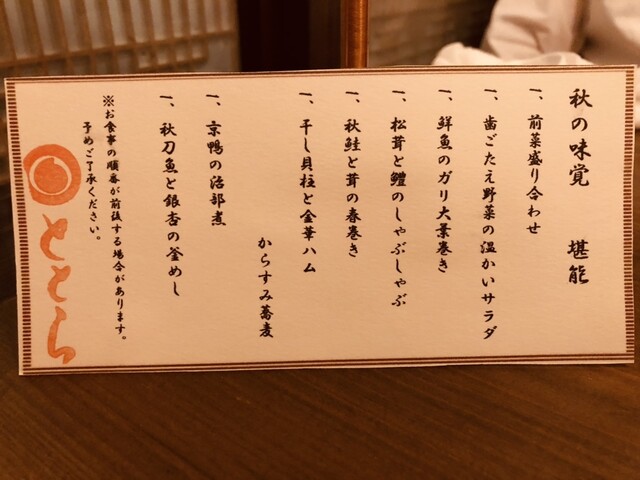 秋の味覚　堪能
一、前菜盛り合わせ
一、歯ごたえ野菜の温かいサラダ
一、鮮魚のガリ大葉巻き
一、松茸と鱧のしゃぶしゃぶ
一、秋鮭と茸の春巻き
一、干し貝柱と金華ハム
からすみ蕎麦
一、京鴨の治部煮
一、秋刀魚と銀杏の釜めし
※お食事の順番が前後する場合があります。
予めご了承ください。
ととら